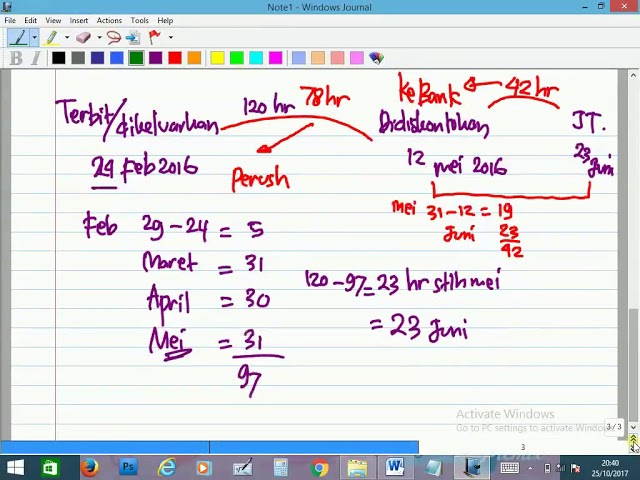 Note1 - Windows Journal
File Edit View Insert Actions Tools Help
B I
120 hr 78 hr ke Bank 42 hr
Terbit/dikeluarkan Didiskontokan JT.
24 Feb 2016 Perush 12 mei 2016 23 Juni
mei 31-12 = 19
Juni 23
42
Feb 29-24 = 5
Maret = 31
120-97=23 hr stlh mei
April = 30
= 23 Juni
Mei = 31
97
Activate Windows
Go to PC settings to activate Windows.
3/3
3
20:40
25/10/2017